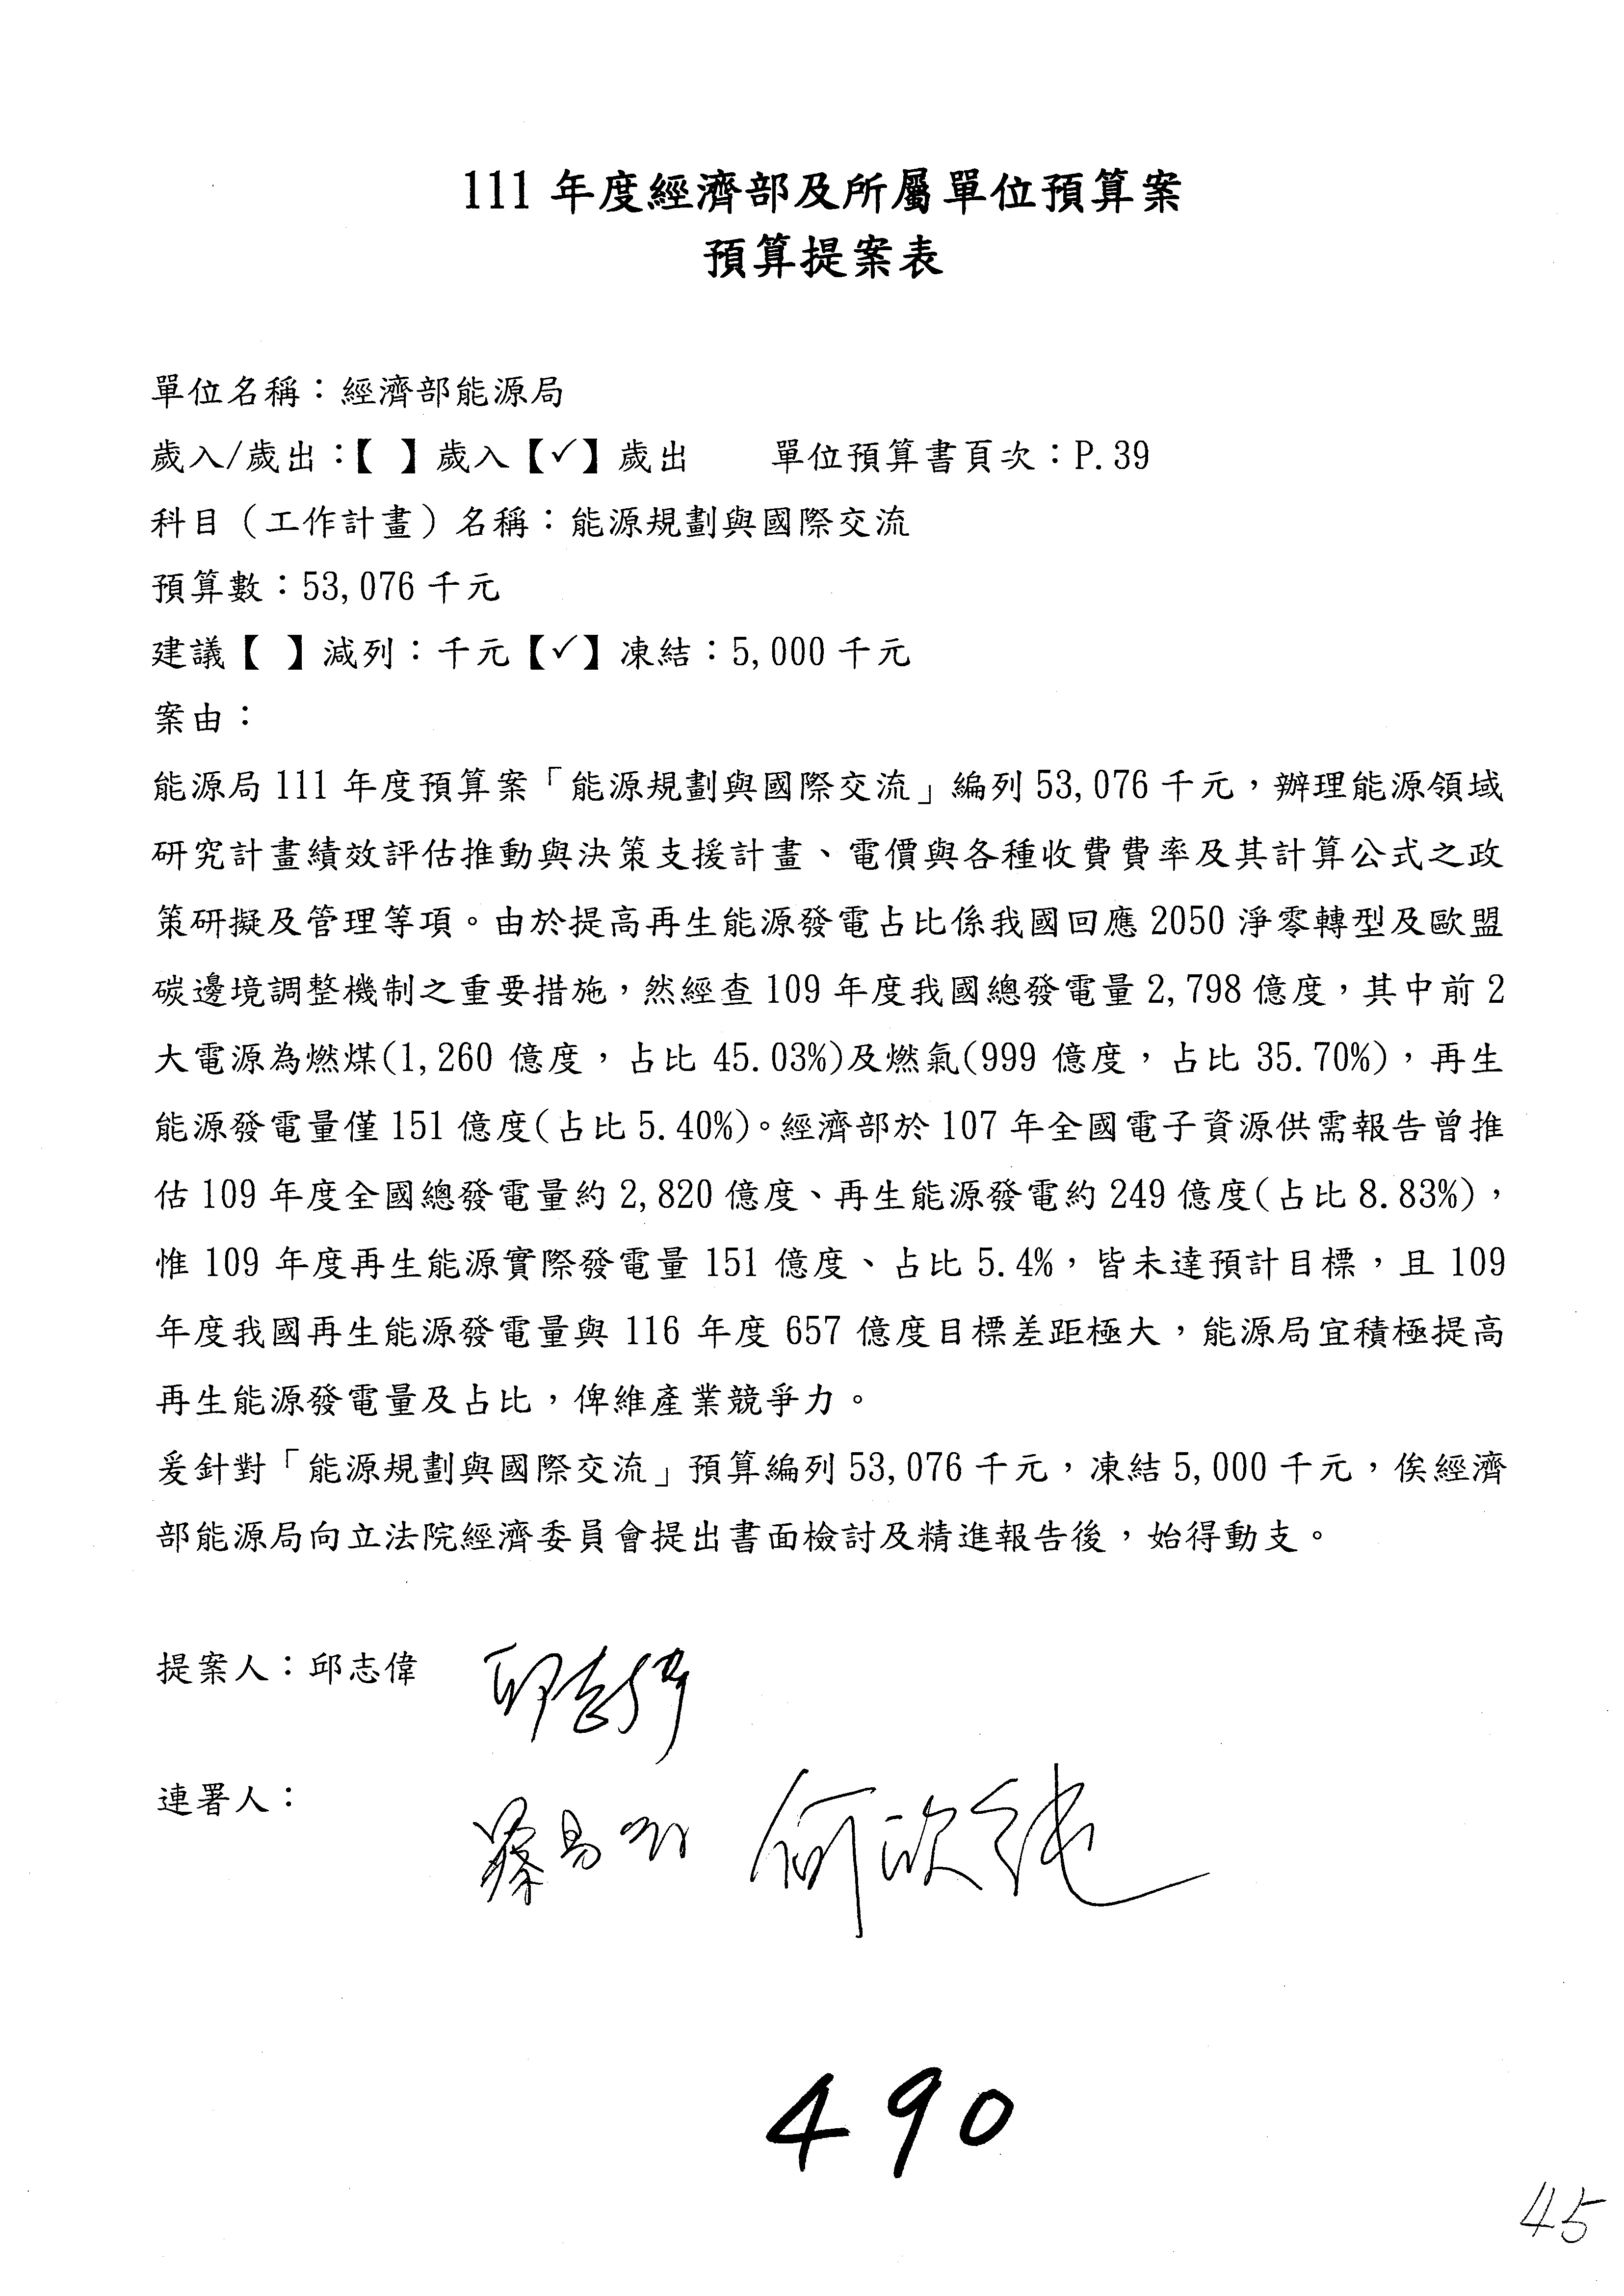 111 年度經濟部及所屬單位預算案
預算提案表
單位名稱：經濟部能源局
歲入/歲出：【 】歲入【✓】歲出　　單位預算書頁次：P.39
科目（工作計畫）名稱：能源規劃與國際交流
預算數：53,076 千元
建議【 】減列：千元【✓】凍結：5,000 千元
案由：
能源局 111 年度預算案「能源規劃與國際交流」編列 53,076 千元，辦理能源領域
研究計畫績效評估推動與決策支援計畫、電價與各種收費費率及其計算公式之政
策研擬及管理等項。由於提高再生能源發電占比係我國回應 2050 淨零轉型及歐盟
碳邊境調整機制之重要措施，然經查 109 年度我國總發電量 2,798 億度，其中前 2
大電源為燃煤(1,260 億度，占比 45.03%)及燃氣(999 億度，占比 35.70%)，再生
能源發電量僅 151 億度(占比 5.40%)。經濟部於 107 年全國電子資源供需報告曾推
估 109 年度全國總發電量約 2,820 億度、再生能源發電約 249 億度(占比 8.83%)，
惟 109 年度再生能源實際發電量 151 億度、占比 5.4%，皆未達預計目標，且 109
年度我國再生能源發電量與 116 年度 657 億度目標差距極大，能源局宜積極提高
再生能源發電量及占比，俾維產業競爭力。
爰針對「能源規劃與國際交流」預算編列 53,076 千元，凍結 5,000 千元，俟經濟
部能源局向立法院經濟委員會提出書面檢討及精進報告後，始得動支。
提案人：邱志偉 邱志偉
連署人：
蔡易餘 何欣純
490
45